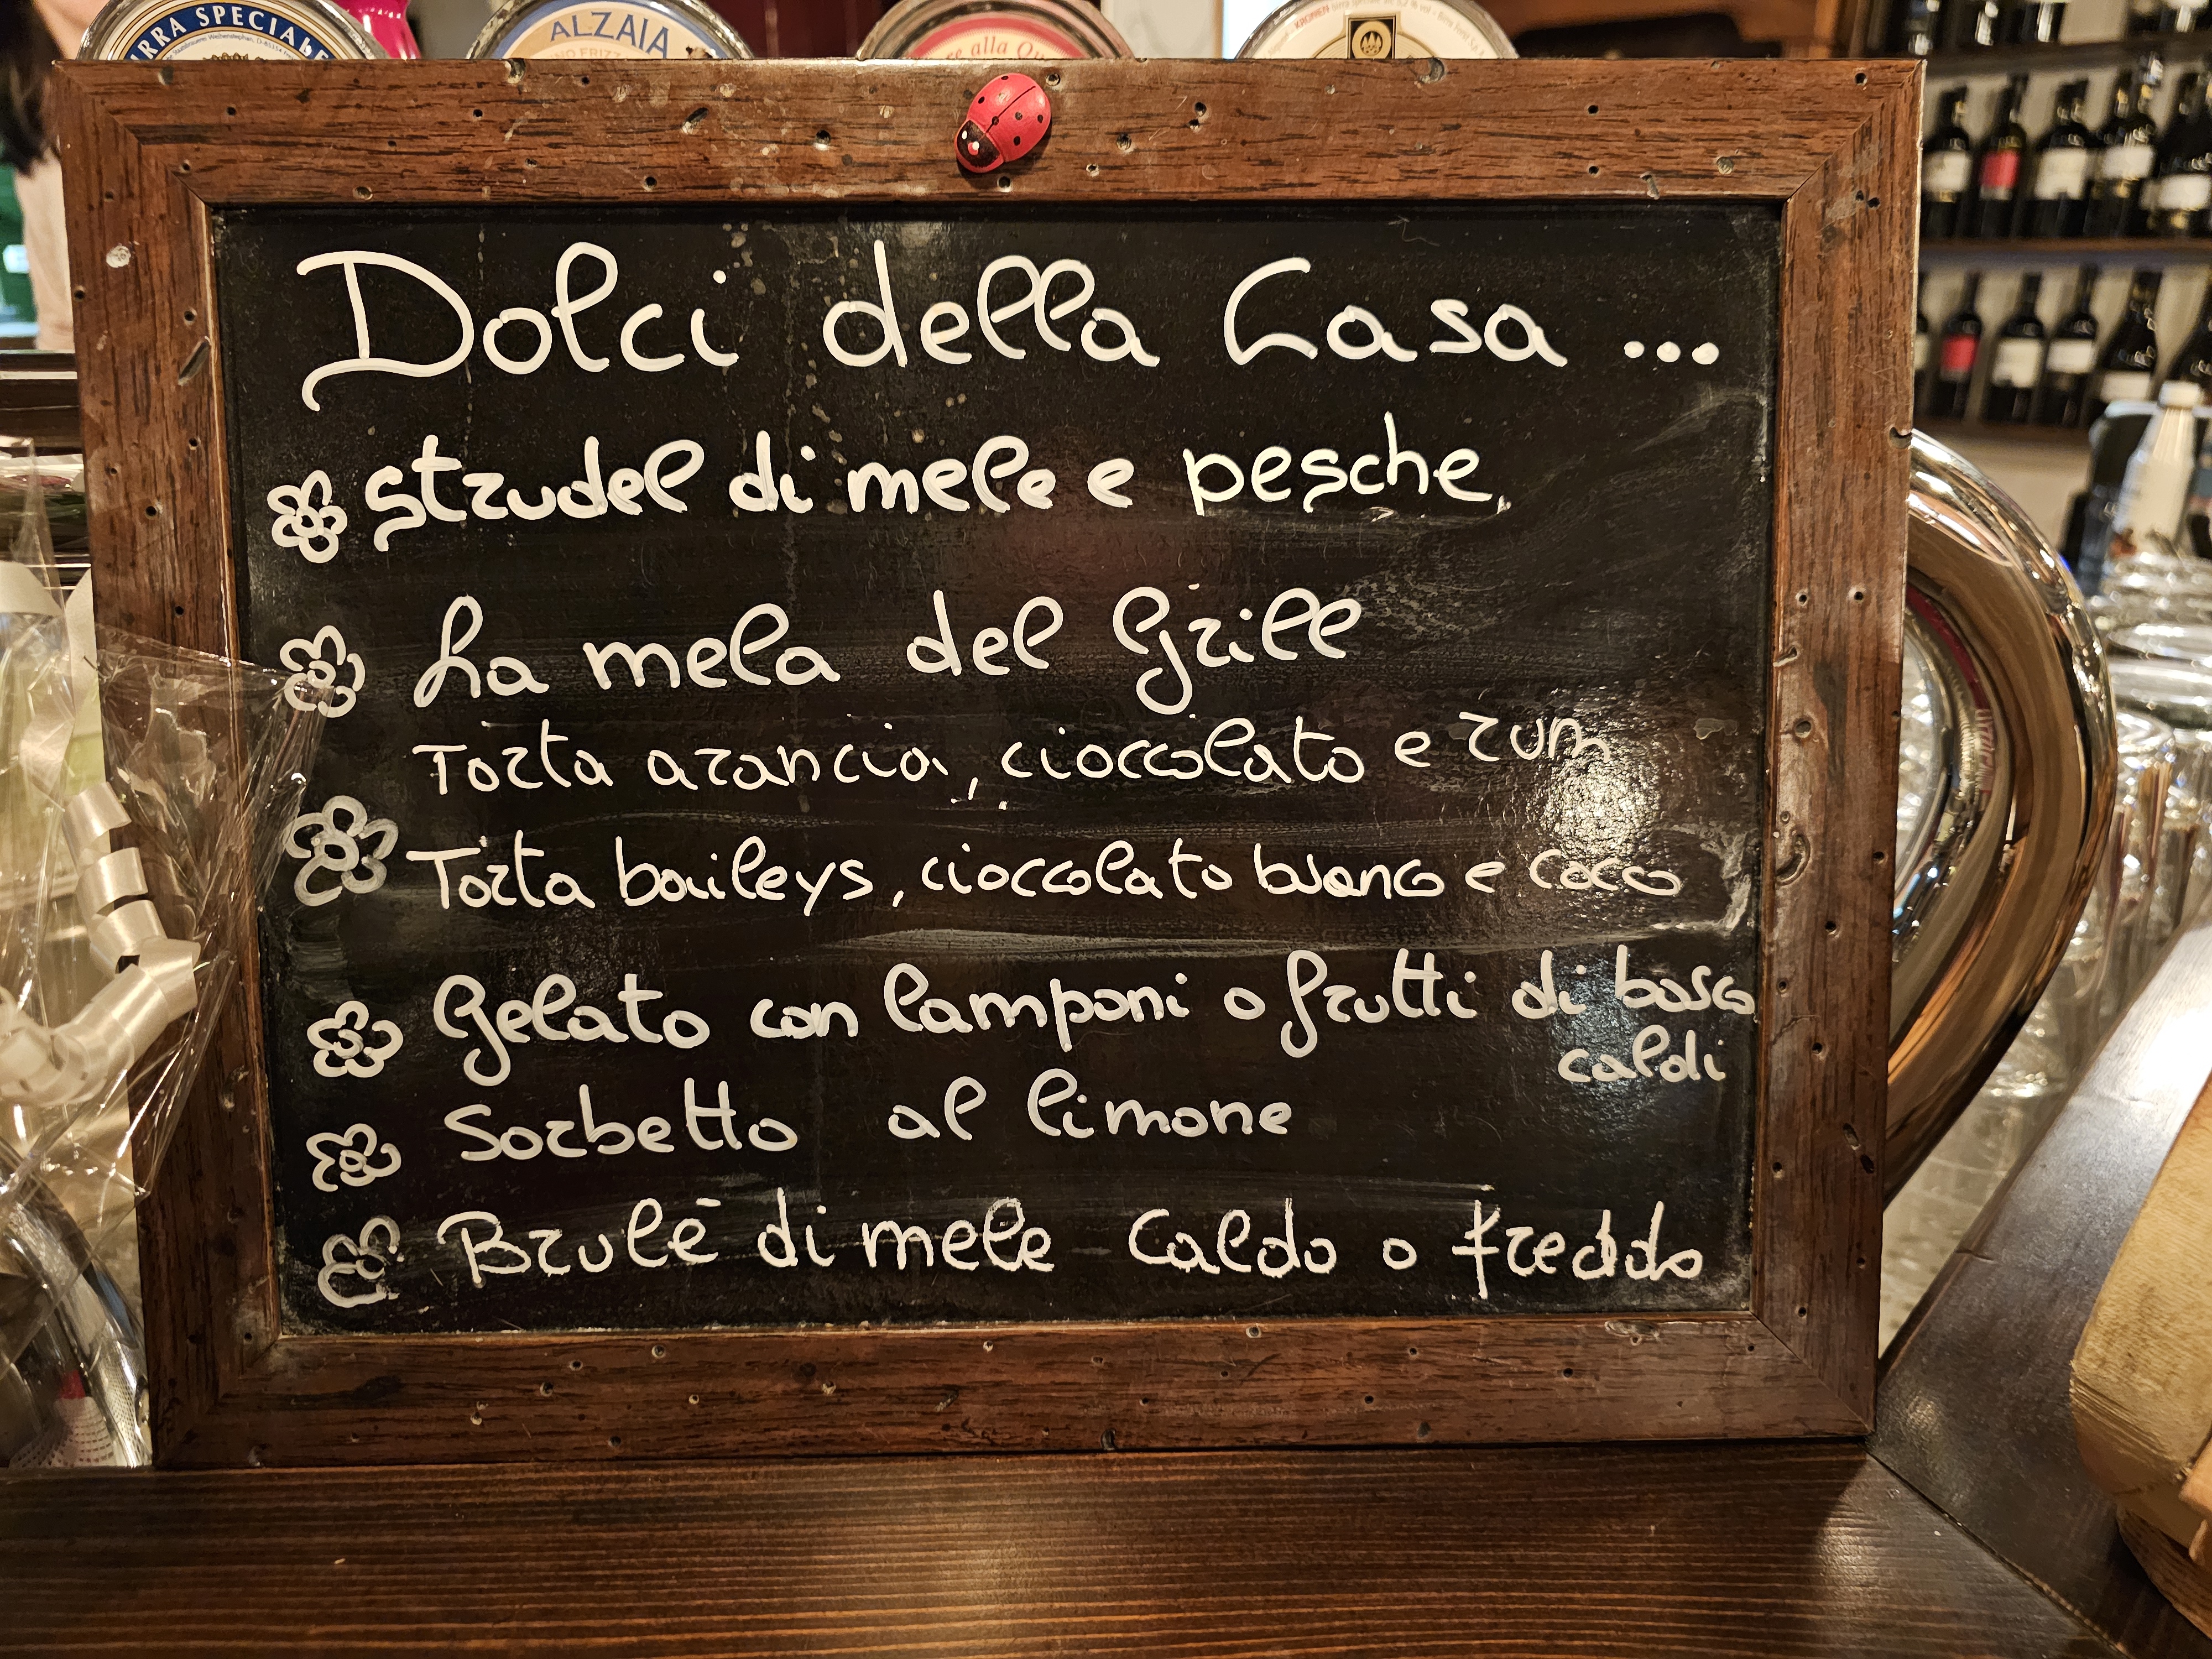 ALZAIA
Dolci della Casa ...
strudel di mele e pesche
La mela del Grill
Torta arancia, cioccolato e rum
Torta baileys, cioccolato bianco e cocco
Gelato con lamponi o frutti di bosco
caldi
Sorbetto al limone
Brulè di mele caldo o freddo